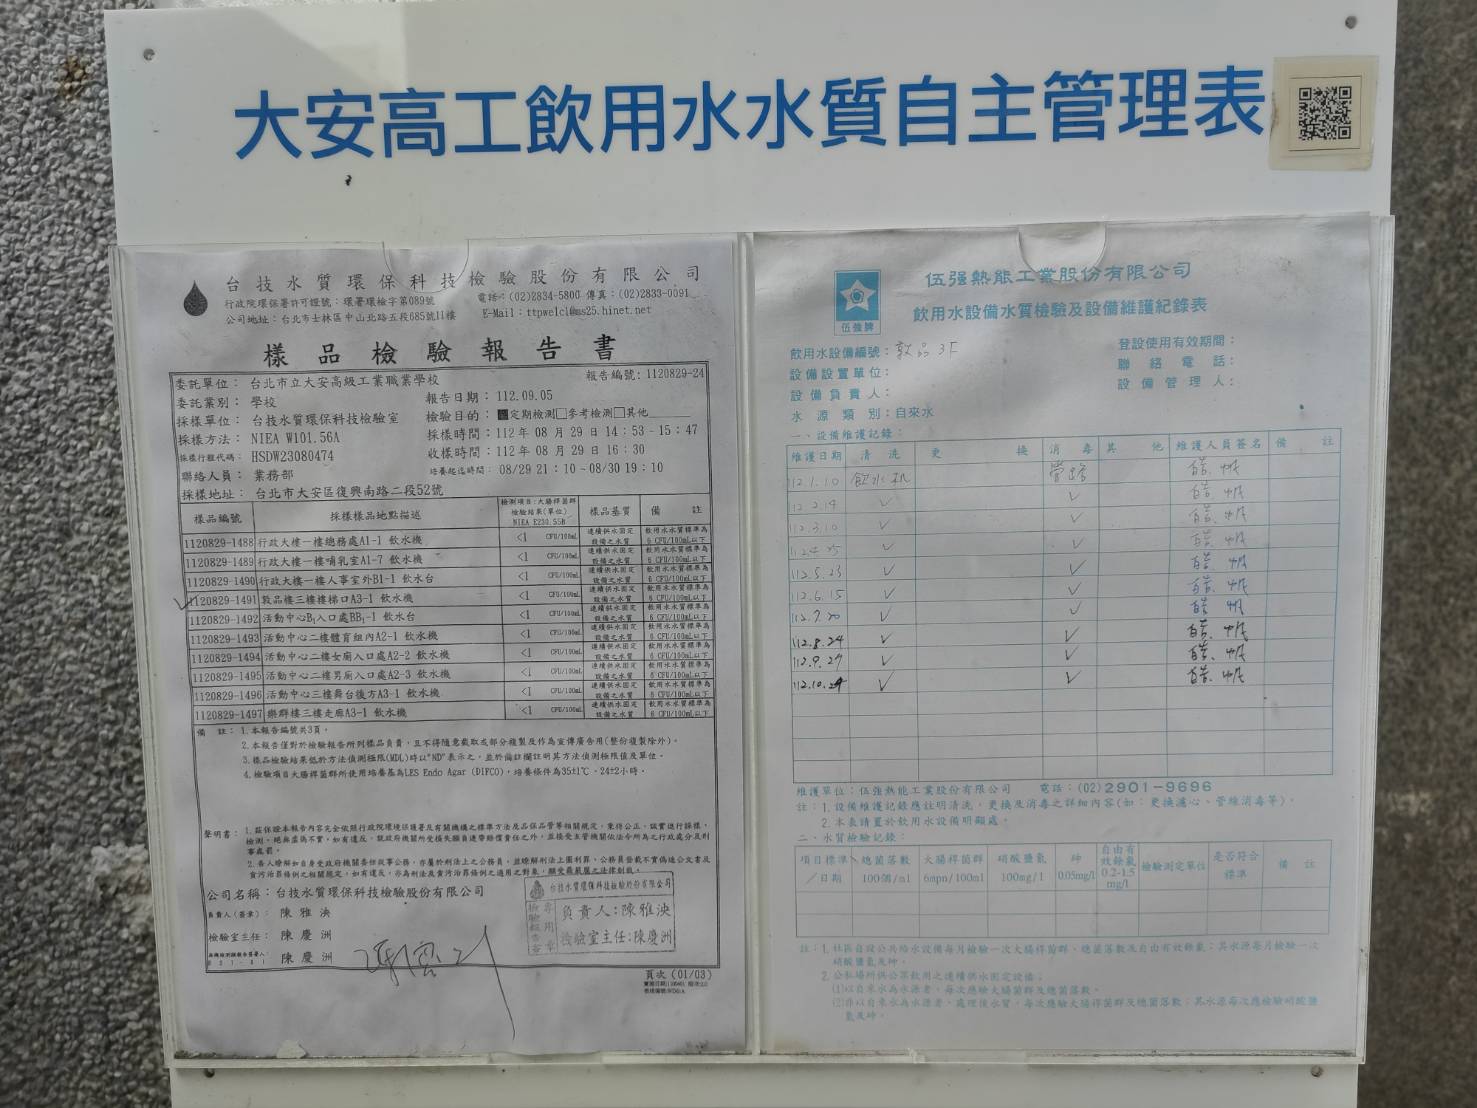 大安高工飲用水水質自主管理表
台技水質環保科技檢驗股份有限公司
行政院環保署許可證號：環署環檢字第089號
電話：(02)2834-5800 傳真：(02)2833-0091
公司地址：台北市士林區中山北路五段685號11樓
E-Mail：ttpwelcl@ms25.hinet.net
樣品檢驗報告書
委託單位：台北市立大安高級工業職業學校
報告編號：1120829-24
委託業別：學校
報告日期：112.09.05
採樣單位：台技水質環保科技檢驗室
檢驗目的：■定期檢測□參考檢測□其他
採樣方法：NIEA W101.56A
採樣時間：112年08月29日14：53-15：47
採樣行程代碼：HSDW23080474
收樣時間：112年08月29日16：30
聯絡人員：業務部
培養起迄時間：08/29 21：10~08/30 19：10
採樣地址：台北市大安區復興南路二段52號
樣品編號 採樣樣品地點描述 檢測項目：大腸桿菌群 檢驗結果(單位) NIEA E230.55B 樣品基質 備註
1120829-1488 行政大樓一樓總務處A1-1 飲水機 <1 CFU/100mL 連續供水固定設備之水質 飲用水水質標準為6 CFU/100mL以下
1120829-1489 行政大樓一樓哺乳室A1-7 飲水機 <1 CFU/100mL 連續供水固定設備之水質 飲用水水質標準為6 CFU/100mL以下
1120829-1490 行政大樓一樓人事室外B1-1 飲水台 <1 CFU/100mL 連續供水固定設備之水質 飲用水水質標準為6 CFU/100mL以下
1120829-1491 敦品樓三樓樓梯口A3-1 飲水機 <1 CFU/100mL 連續供水固定設備之水質 飲用水水質標準為6 CFU/100mL以下
1120829-1492 活動中心B1入口處BB1-1 飲水台 <1 CFU/100mL 連續供水固定設備之水質 飲用水水質標準為6 CFU/100mL以下
1120829-1493 活動中心二樓體育組內A2-1 飲水機 <1 CFU/100mL 連續供水固定設備之水質 飲用水水質標準為6 CFU/100mL以下
1120829-1494 活動中心二樓女廁入口處A2-2 飲水機 <1 CFU/100mL 連續供水固定設備之水質 飲用水水質標準為6 CFU/100mL以下
1120829-1495 活動中心二樓男廁入口處A2-3 飲水機 <1 CFU/100mL 連續供水固定設備之水質 飲用水水質標準為6 CFU/100mL以下
1120829-1496 活動中心三樓舞台後方A3-1 飲水機 <1 CFU/100mL 連續供水固定設備之水質 飲用水水質標準為6 CFU/100mL以下
1120829-1497 樂群樓三樓走廊A3-1 飲水機 <1 CFU/100mL 連續供水固定設備之水質 飲用水水質標準為6 CFU/100mL以下
備註：1.本報告編號共3頁。
2.本報告僅對於檢驗報告所列樣品負責，且不得隨意截取或部分複製及作為宣傳廣告用(整份複製除外)。
3.樣品檢驗結果低於方法偵測極限(MDL)時以"ND"表示之，並於備註欄註明其方法偵測極限值及單位。
4.檢驗項目大腸桿菌群所使用培養基為LES Endo Agar (DIFCO)，培養條件為35±1℃、24±2小時。
聲明書：1.茲保證本報告內容完全依照行政院環境保護署及有關機構之標準方法及品保品管等相關規定，秉持公正、誠實進行採樣、
檢測。絕無虛偽不實，如有違反，就政府機關所受損失願負連帶賠償責任之外，並接受主管機關依法令所為之行政處分及刑
事處罰。
2.吾人瞭解如自身受政府機關委任從事公務，亦屬於刑法上之公務員，並瞭解刑法上圖利罪、公務員登載不實偽造公文書及
貪污治罪條例之相關規定，如有違反，亦為刑法及貪污治罪條例之適用之對象，願受最嚴厲之法律制裁。
公司名稱：台技水質環保科技檢驗股份有限公司
負責人(簽章)：陳雅泱
檢驗室主任：陳慶洲
陳慶洲
台技水質環保科技檢驗股份有限公司
檢驗報告專用章
負責人：陳雅泱
檢驗室主任：陳慶洲
頁次(01/03)
伍強牌
伍強熱能工業股份有限公司
飲用水設備水質檢驗及設備維護紀錄表
飲用水設備編號：敦品3F
登設使用有效期間：
設備設置單位：
聯絡電話：
設備負責人：
設備管理人：
水源類別：自來水
一、設備維護記錄：
維護日期 清洗 更換 消毒 其他 維護人員簽名 備註
112.1.10 飲水机 管路
112.2.14 ✓ ✓
112.3.10 ✓ ✓
112.4.25 ✓ ✓
112.5.23 ✓ ✓
112.6.15 ✓ ✓
112.7.20 ✓ ✓
112.8.24 ✓ ✓
112.9.27 ✓ ✓
112.10.24 ✓ ✓
維護單位：伍強熱能工業股份有限公司 電話：(02)2901-9696
註：1.設備維護記錄應註明清洗、更換及消毒之詳細內容(如：更換濾心、管線消毒等)。
2.本表請置於飲用水設備明顯處。
二、水質檢驗記錄：
項目標準／日期 總菌落數100個/ml 大腸桿菌群6mpn/100ml 硝酸鹽氮100mg/l 砷0.05mg/l 自由有效餘氯0.2-1.5mg/l 檢驗測定單位 是否符合標準 備註
註：1.社區自設公共給水設備每月檢驗一次大腸桿菌群、總菌落數及自由有效餘氯；其水源每月檢驗一次
硝酸鹽氮及砷。
2.公私場所供公眾飲用之連續供水固定設備：
(1)以自來水為水源者，每次應驗大腸菌群及總菌落數。
(2)非以自來水為水源者，處理後水質，每次應驗大腸桿菌群及總菌落數；其水源每次應檢驗硝酸鹽
氮及砷。